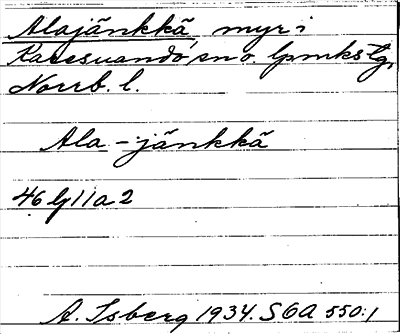 Alajänkkä, myr i
Karesuando sn o. lpmkstg,
Norrb. l.
Ala-jänkkä
46 G 11 a 2
A. Isberg 1934. SOA 550:1